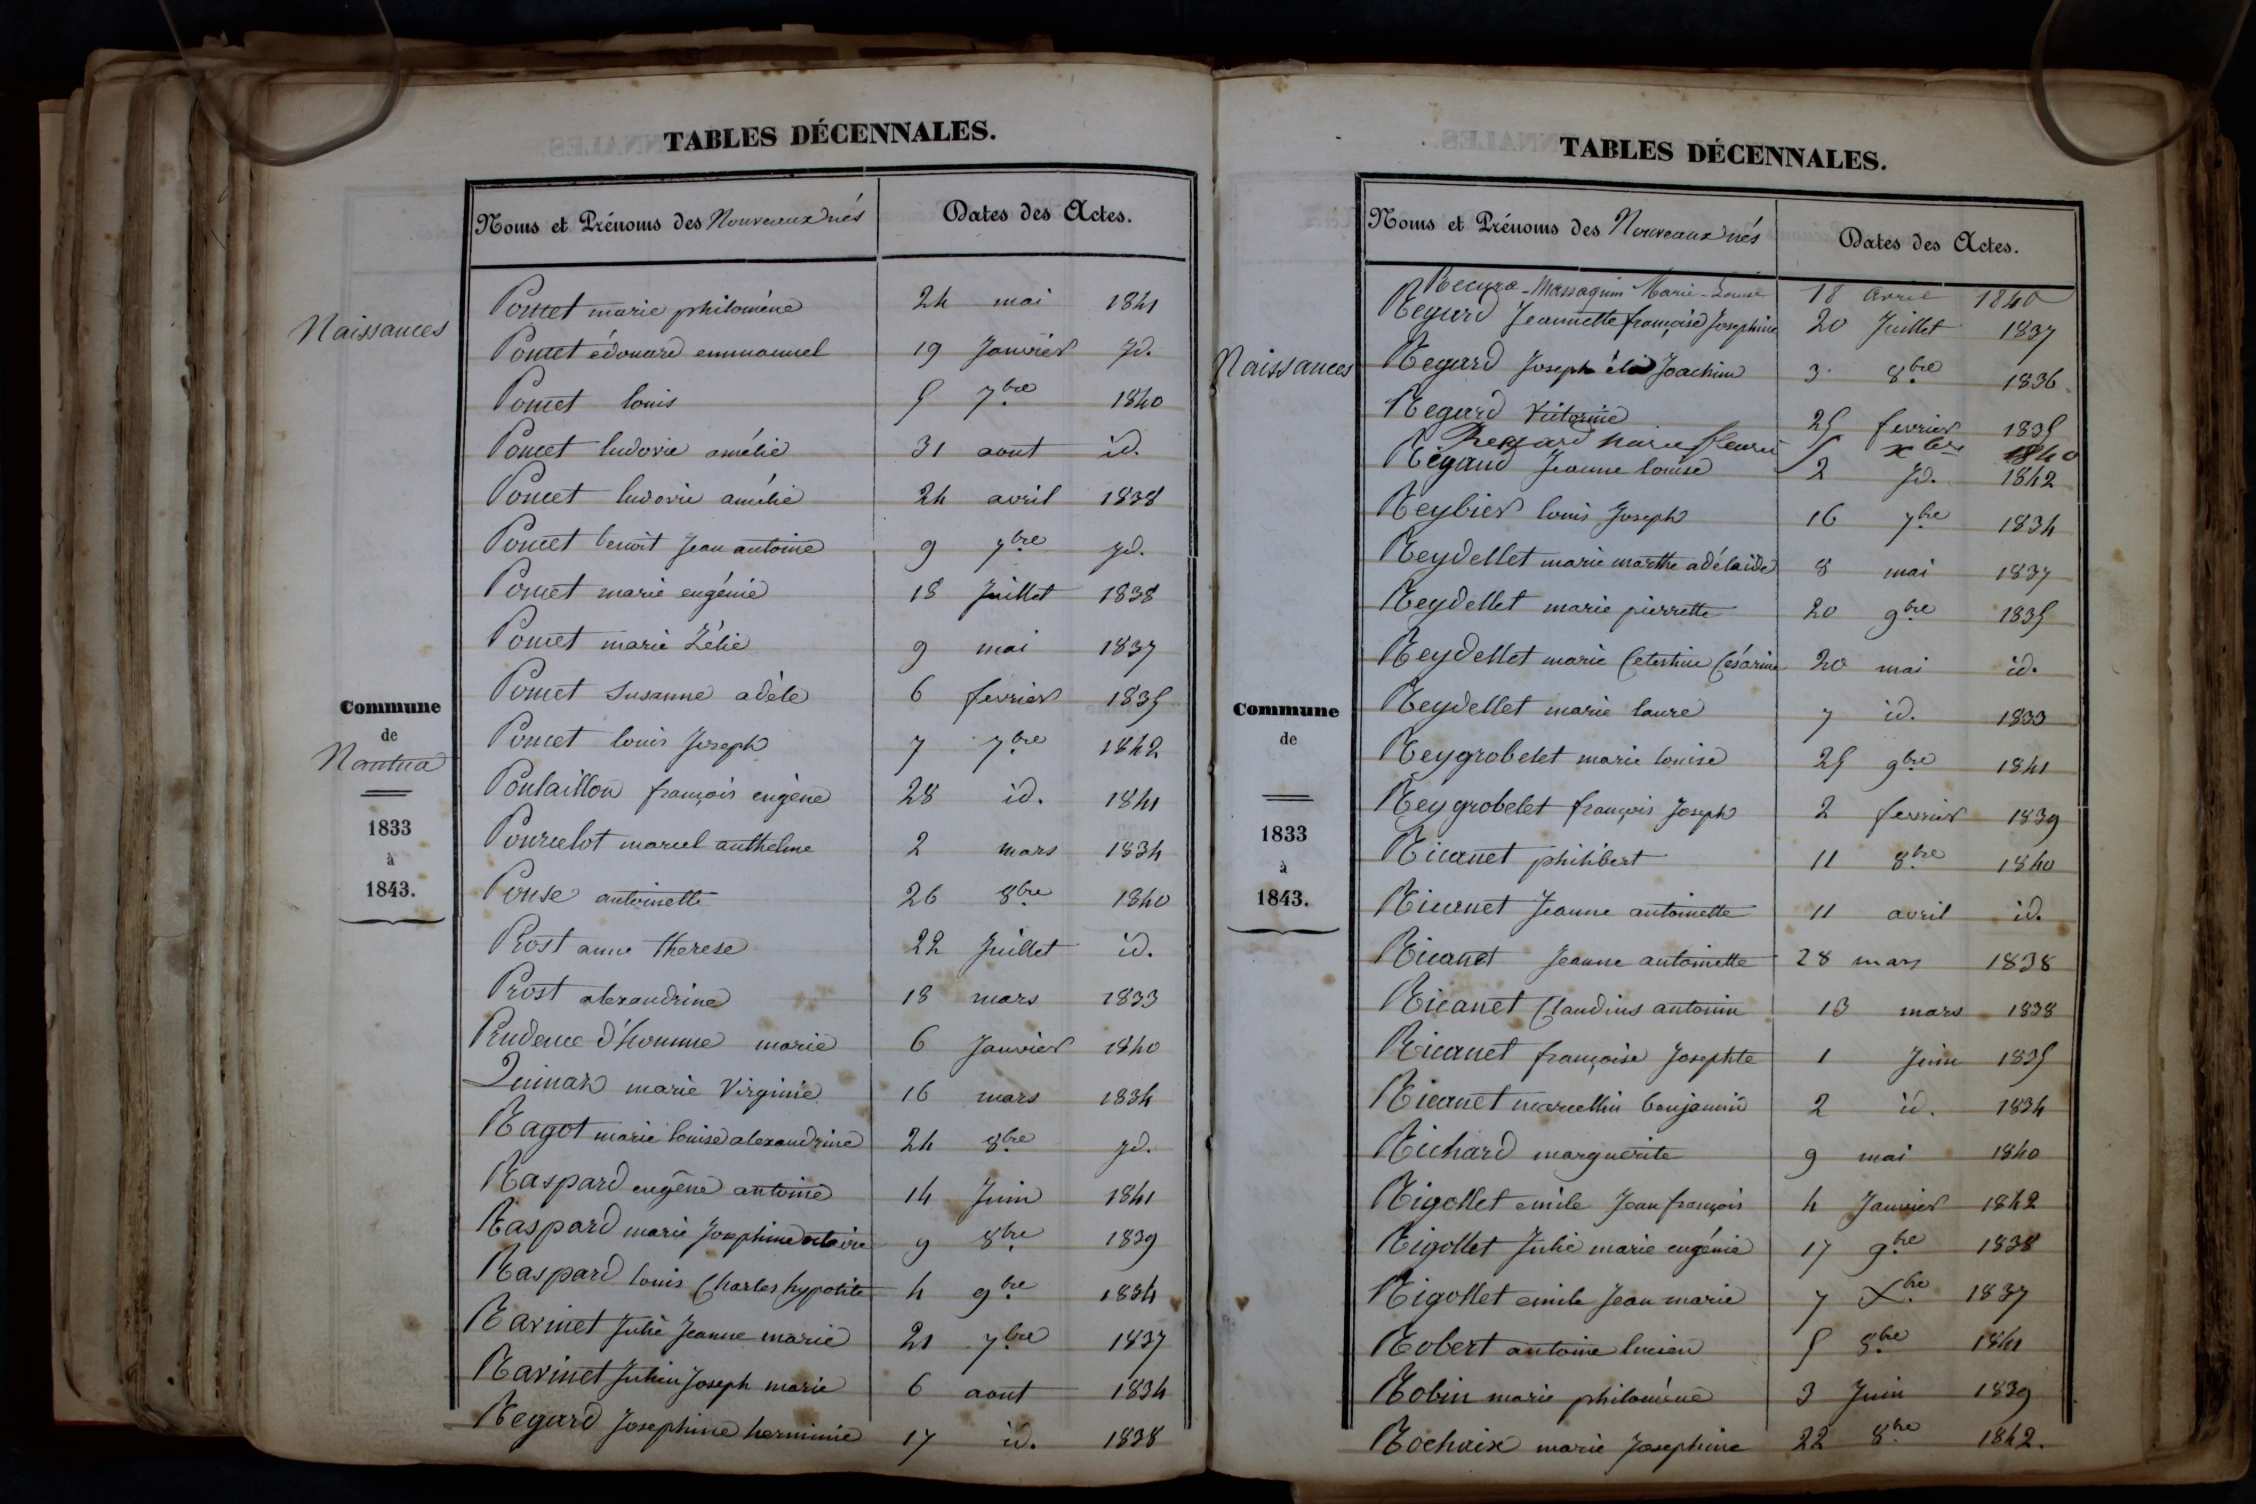 TABLES DÉCENNALES.
Noms et Prénoms des Nouveaux nés Dates des Actes.
Naissances
Commune
de
Nantua
1833
à
1843.
Poncet marie philoméne 24 mai 1841
Poncet édouard emmanuel 19 Janvier Jd.
Poncet louis 5 7bre 1840
Poncet ludovie amélie 31 aout id.
Poncet ludovie amélie 24 avril 1838
Poncet benoit Jean antoine 9 7bre Jd.
Poncet marie eugénie 18 Juillet 1838
Poncet marie Zélie 9 mai 1837
Poncet Susanne adèle 6 fevrier 1835
Poncet louis Joseph 7 7bre 1842
Poulaillon françois eugène 28 id. 1841
Pourcelot marcel anthelme 2 mars 1834
Pouse antoinette 26 8bre 1840
Prost anne therese 22 Juillet id.
Prost alexandrine 18 mars 1833
Prudence d'homme marie 6 Janvier 1840
marie Virginie 16 mars 1834
Ragot marie louise alexandrine 24 8bre Jd.
Raspard eugène antoine 14 Juin 1841
Raspard marie Josephine 9 8bre 1839
Raspard louis Charles hypolite 4 9bre 1834
Ravinet Julie Jeanne marie 21 7bre 1837
Ravinet Julien Joseph marie 6 aout 1834
Regard Josephine herminie 17 id. 1838
TABLES DÉCENNALES.
Noms et Prénoms des Nouveaux nés Dates des Actes.
Naissances
Commune
de
1833
à
1843.
Marie-Louise 18 avril 1840
Regard Jeannette françoise Josephine 20 Juillet 1837
Regard Joseph élie Joachim 3 8bre 1836
Regard Victorine 25 fevrier 1835
Regard Marie fleurie 5 xbre 1840
Régaud Jeanne louise 2 Jd. 1842
Reybier louis Joseph 16 7bre 1834
Reydellet marie marthe adélaïde 8 mai 1837
Reydellet marie pierrette 20 9bre 1835
Reydellet marie Celestine Césarine 20 mai id.
Reydellet marie laure 7 id. 1833
Reygrobelet marie louise 25 9bre 1841
Reygrobelet françois Joseph 2 fevrier 1839
Ricanet philibert 11 8bre 1840
Ricanet Jeanne antoinette 11 avril id.
Ricanet Jeanne antoinette 28 mars 1838
Ricanet Claudius antonin 13 mars 1838
Ricanet françoise Josephte 1 Juin 1835
Ricanet marcellin benjamin 2 id. 1834
Richard marguerite 9 mai 1840
Rigollet emile Jean françois 4 Janvier 1842
Rigollet Julie marie eugénie 17 9bre 1838
Rigollet emile Jean marie 7 Xbre 1837
Robert antoine lucien 5 8bre 1841
Robin marie philoméne 3 Juin 1839
Rochaix marie Josephine 22 8bre 1842.